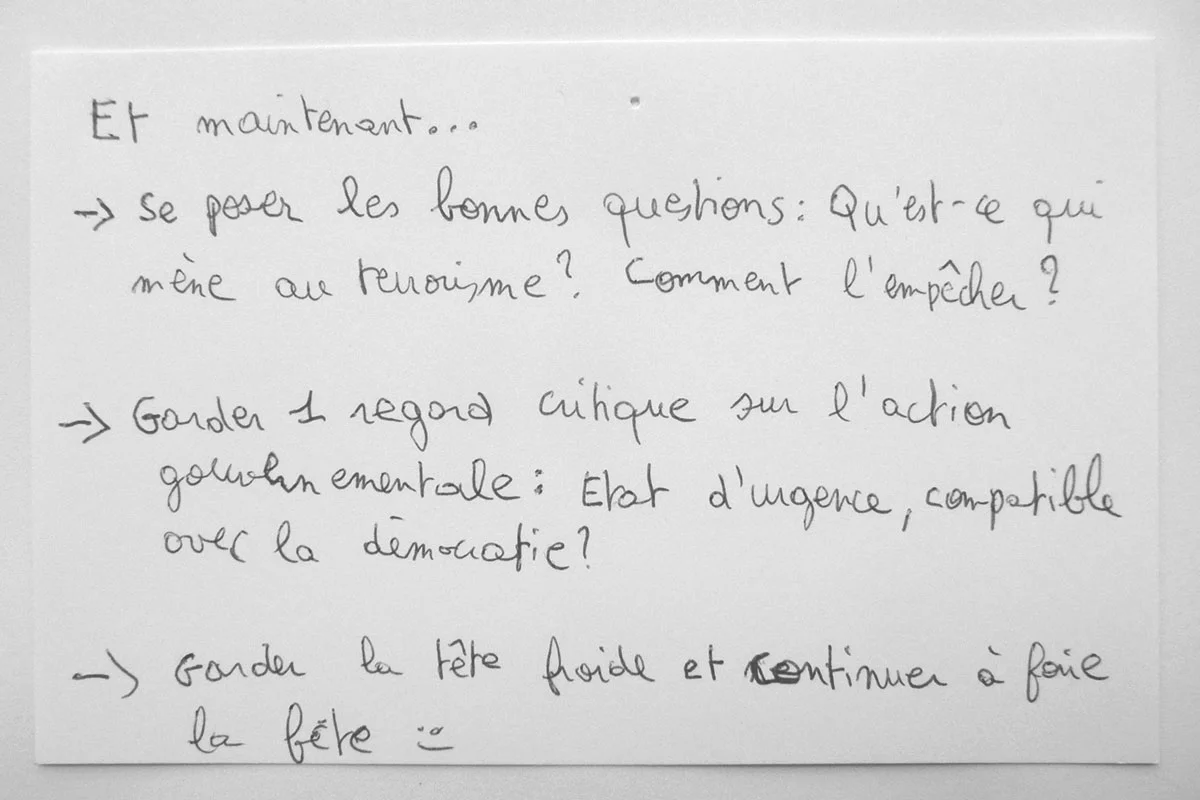 Et maintenant...
-> Se poser les bonnes questions: Qu'est-ce qui
mène au terrorisme? Comment l'empêcher?
-> Garder 1 regard critique sur l'action
gouvernementale: Etat d'urgence, compatible
avec la démocratie?
-> Garder la tête froide et continuer à faire
la fête :)